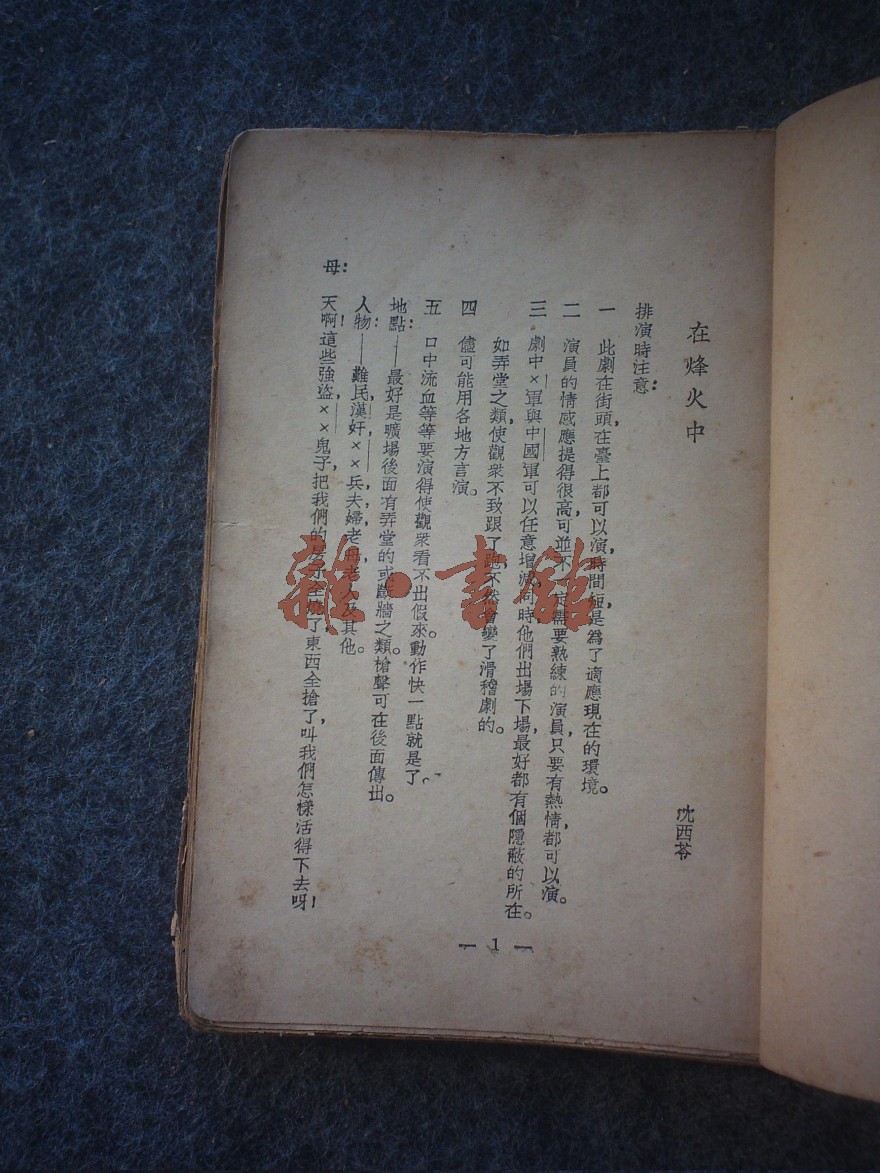 在烽火中
沈西苓
排演時注意：
一　此劇在街頭，在臺上都可以演，時間短是爲了適應現在的環境。
二　演員的情感應提得很高，可並不一定需要熟練的演員，只要有熱情，都可以演。
三　劇中×軍與中國軍可以任意增減，同時他們出場下場，最好都有個隱蔽的所在。
如弄堂之類，使觀衆不致跟了跑，不然會變了滑稽劇的。
四　儘可能用各地方言演。
五　口中流血等等要演得使觀衆看不出假來。動作快一點就是了。
地點：——最好是曠場後面有弄堂的或斷牆之類。槍聲可在後面傳出。
人物：——難民，漢奸，××兵，夫婦，老母，老人及其他。
母：天啊！這些強盜，××鬼子，把我們的房子全燒了，東西全搶了，叫我們怎樣活得下去呀！
— 1 —
雜·書館